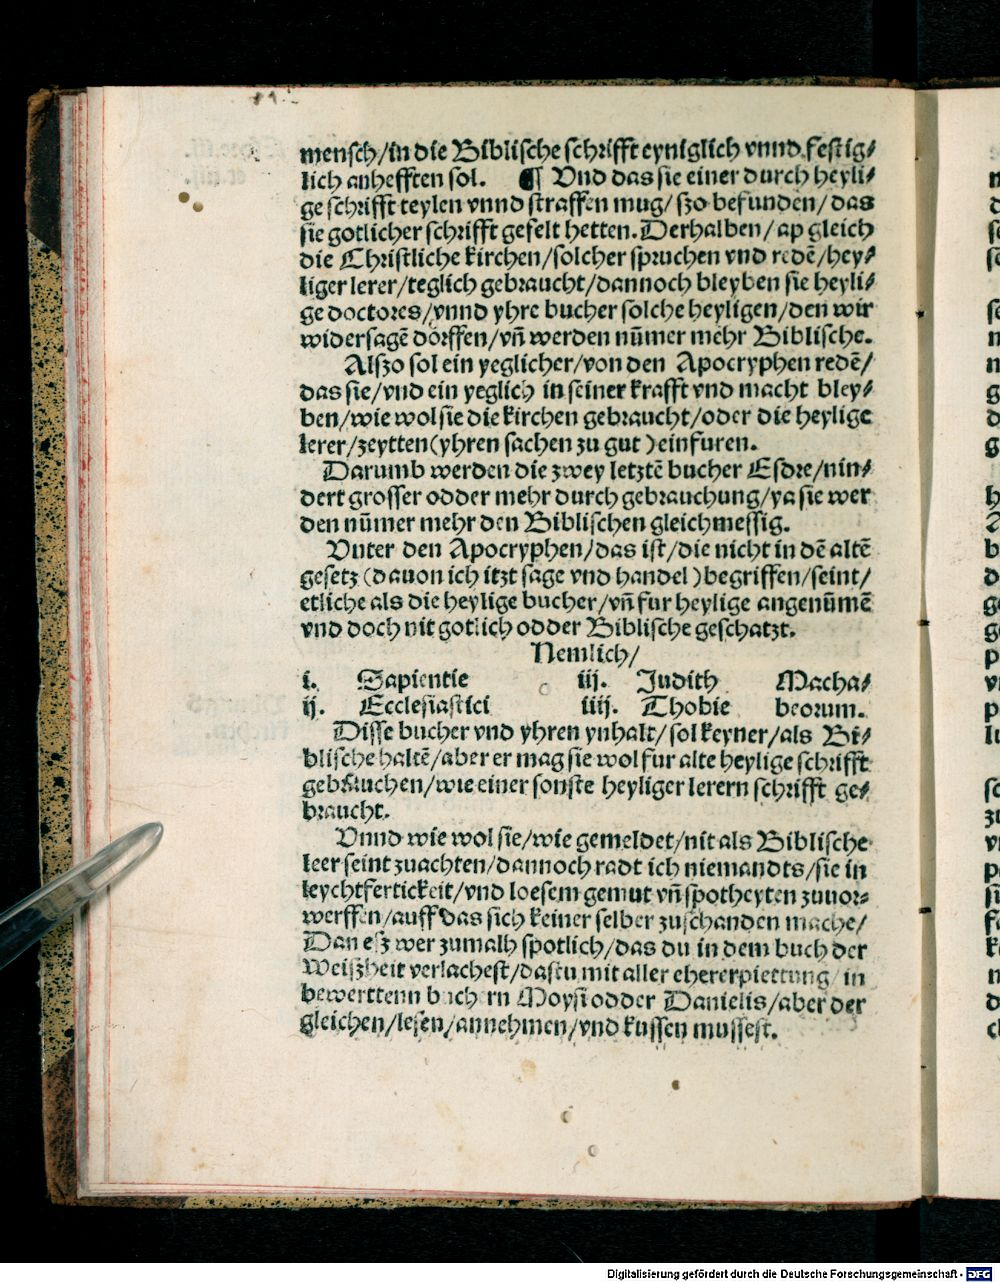 mensch/in die Biblische schrifft eyniglich vnnd festig/
lich anhefften sol. ¶ Vnd das sie einer durch heyli/
ge schrifft teylen vnnd straffen mug/szo befunden/das
sie gotlicher schrifft gefelt hetten. Derhalben/ap gleich
die Christliche kirchen/solcher spruchen vnd redē/hey/
liger lerer/teglich gebraucht/dannoch bleyben sie heyli/
ge doctores/vnnd yhre bucher solche heyligen/den wir
widersagē dörffen/vn̄ werden nūmer mehr Biblische.
Alszo sol ein yeglicher/von den Apocryphen redē/
das sie/vnd ein yeglich in seiner krafft vnd macht bley/
ben/wie wol sie die kirchen gebraucht/oder die heylige
lerer/zeytten(yhren sachen zu gut )einfuren.
Darumb werden die zwey letztē bucher Esdre/nin/
dert grosser odder mehr durch gebrauchung/ya sie wer
den nūmer mehr den Biblischen gleichmessig.
Vnter den Apocryphen/das ist/die nicht in dē altē
gesetz (dauon ich itzt sage vnd handel )begriffen/seint/
etliche als die heylige bucher/vn̄ fur heylige angenūmē
vnd doch nit gotlich odder Biblische geschatzt.
Nemlich/
i. Sapientie iij. Judith Macha/
ij. Ecclesiastici iiij. Thobie beorum.
Disse bucher vnd yhren ynhalt/sol keyner/als Bi/
blische haltē/aber er mag sie wol fur alte heylige schrifft
gebrauchen/wie einer sonste heyliger lerern schrifft ge/
braucht.
Vnnd wie wol sie/wie gemeldet/nit als Biblische
leer seint zuachten/dannoch radt ich niemandts/sie in
leychtfertickeit/vnd loesem gemut vn̄ spotheyten zuuor=
werffen/auff das sich keiner selber zuschanden mache/
Dan esz wer zumalh spotlich/das du in dem buch der
Weiszheit verlachest/dastu mit aller ehererpiettung/in
bewerttenn buchern Moysi odder Danielis/aber der
gleichen/lesen/annehmen/vnd kussen mussest.
Digitalisierung gefördert durch die Deutsche Forschungsgemeinschaft - DFG